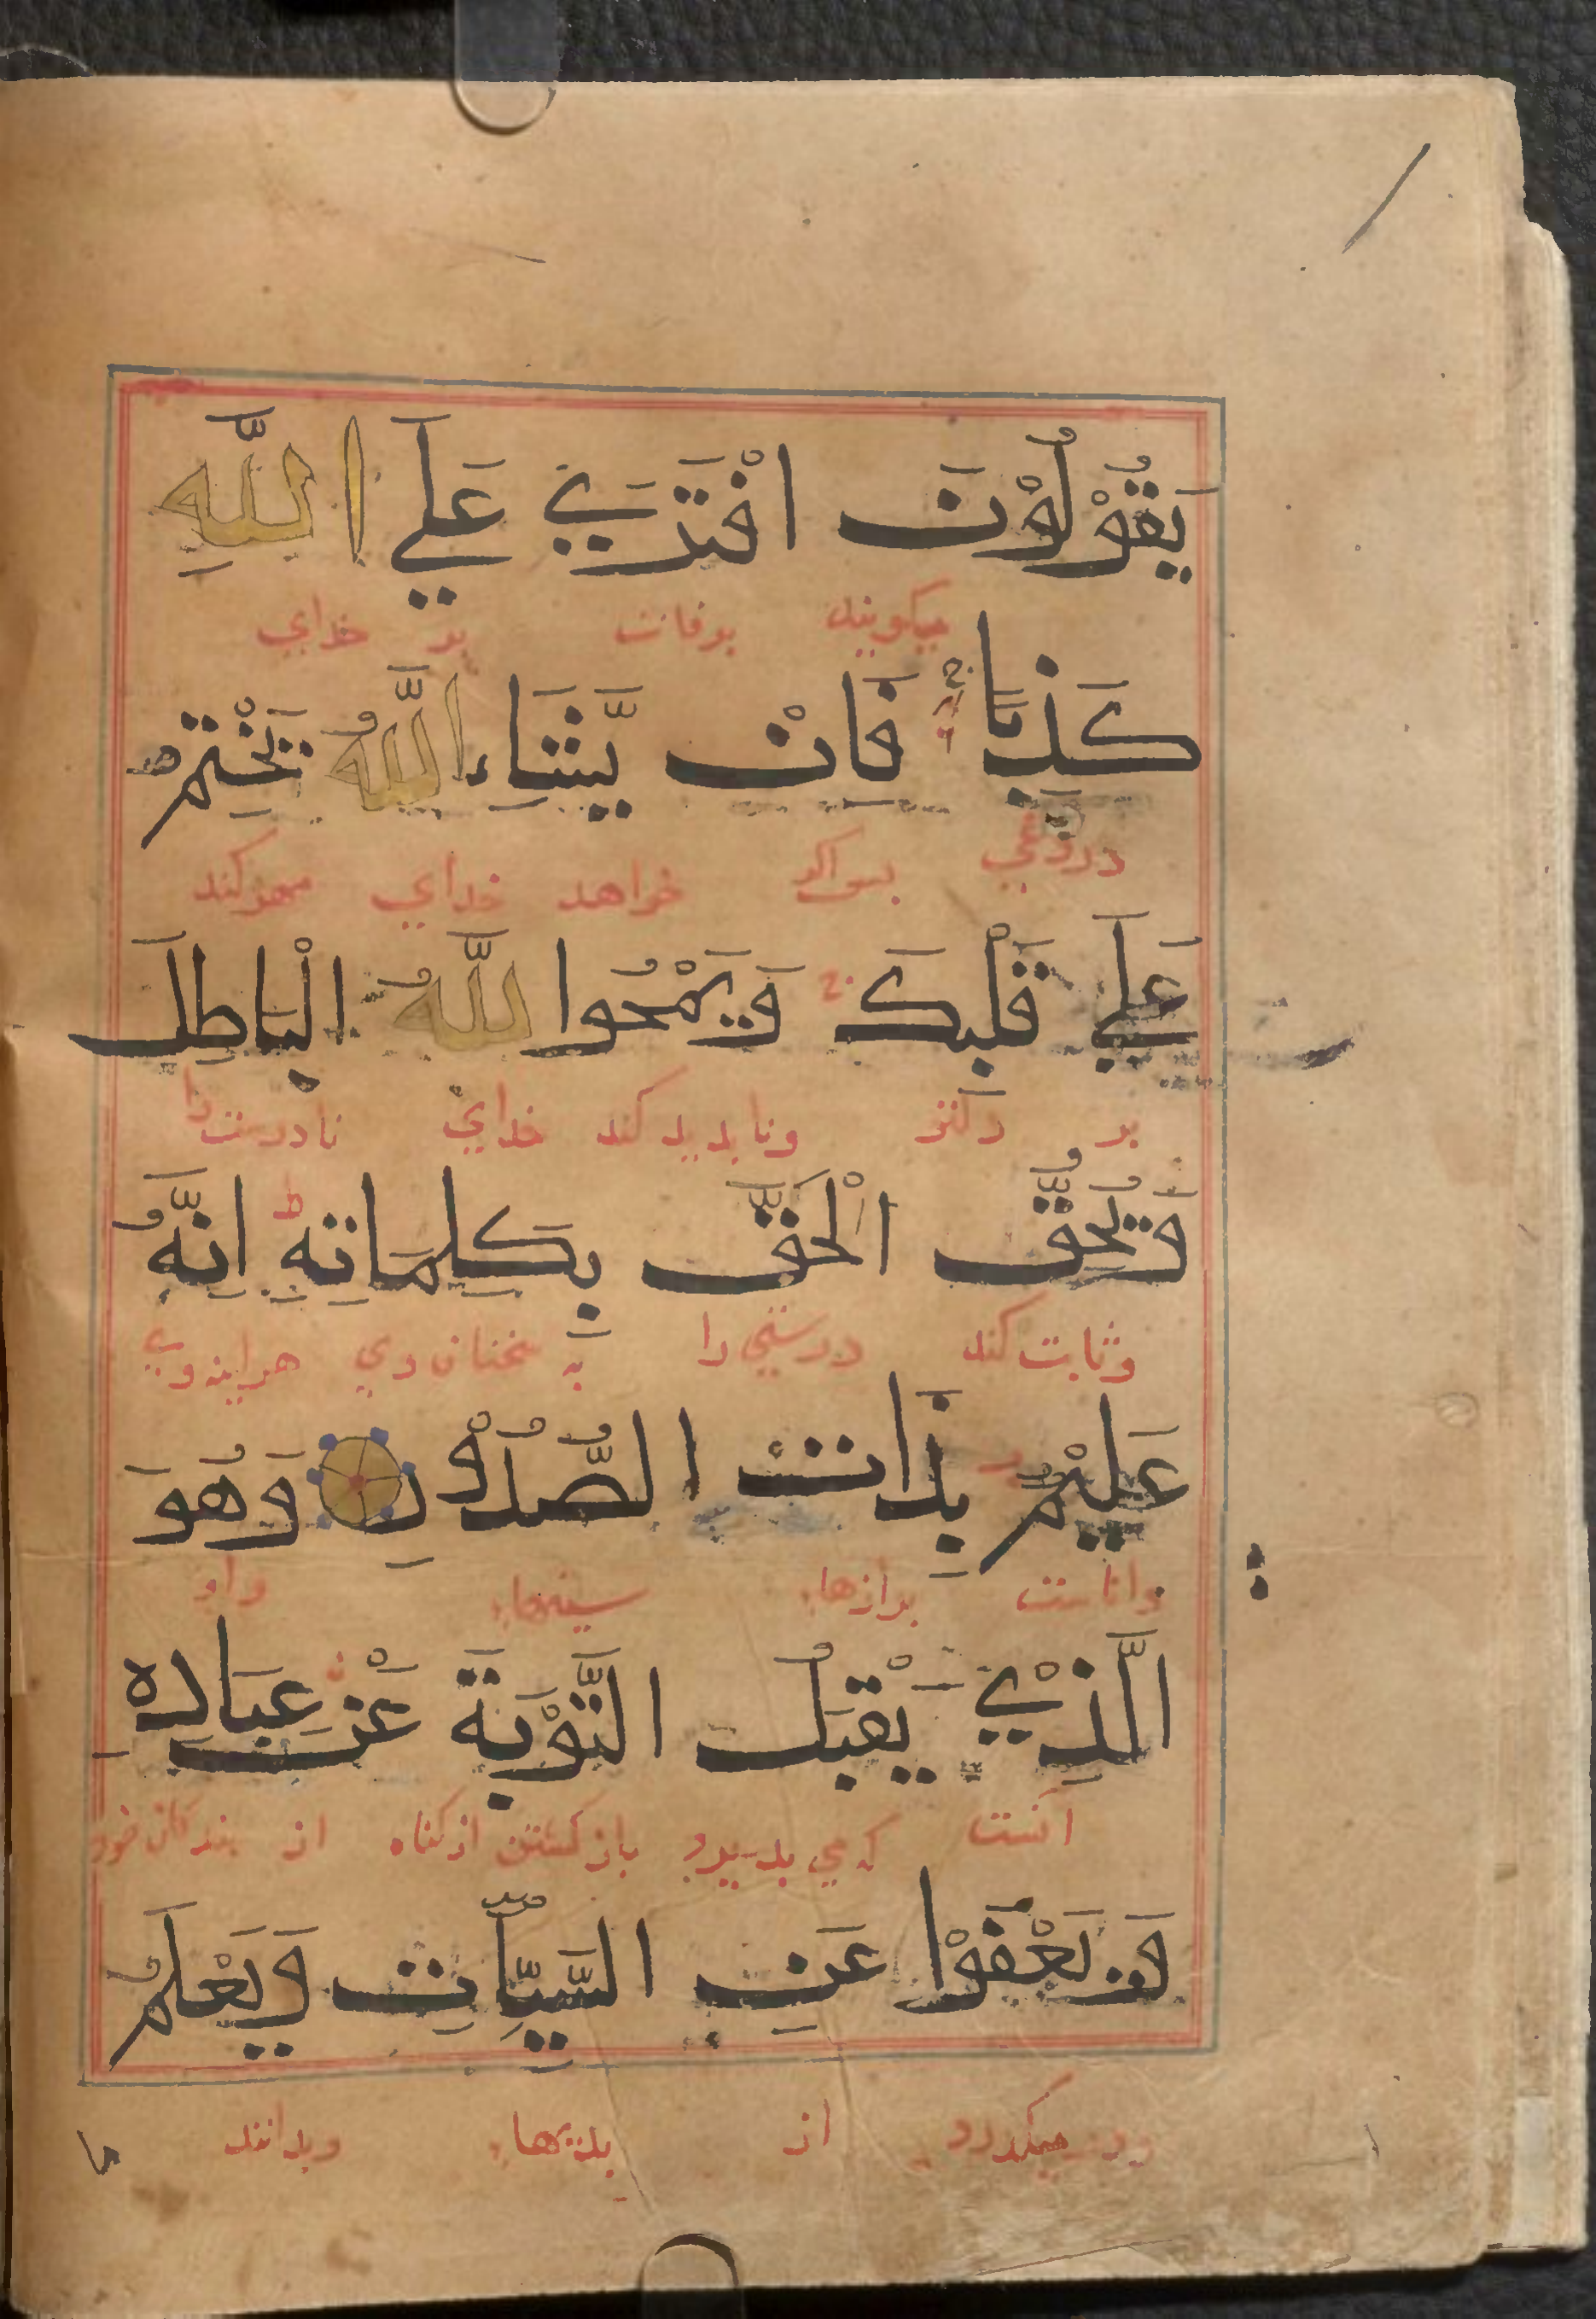 يَقُوْلُوْنَ افْتَرَيٰ عَلَي اللَّهِ
ميكويند برفات بر خداي
كَذِبًا فَاِنْ يَّشَاءِ اللَّهُ يَخْتِمْ
دروغي بس اكر خواهد خداي مهر كند
عَلَي قَلْبِكَ وَيَمْحُوا للَّهُ الْبَاطِلَ
بر دلتو ونابديد كند خداي نادرست را
وَيُحِقُّ الْحَقَّ بِكَلِمَاتِهِ اِنَّهُ
وثابت كند درستي را به سخنان وي هراينه وي
عَلِيْمٌ بِذَاتِ الصُّدُوْرِ وَهُوَ
داناست برازهاء سينهاء واو
الَّذِيْ يَقْبَلُ التَّوْبَةَ عَنْ عِبَادِهِ
انست كه مي بديرد باز كشتن از كناه از بندكان خود
وَيَعْفُوْا عَنِ السَّيِّاٰتِ وَيَعْلَمُ
ودر ميكدرد از بديهاء وبداند